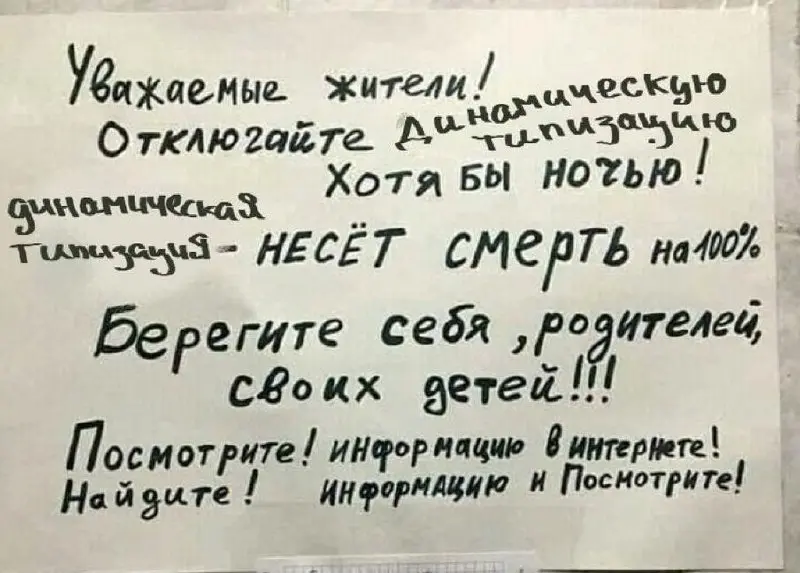 Уважаемые жители!
Отключайте динамическую
типизацию
Хотя бы ночью!
динамическая
типизация - НЕСЁТ смерть на 100%
Берегите себя, родителей,
своих детей!!!
Посмотрите! информацию в интернете!
Найдите! информацию и Посмотрите!